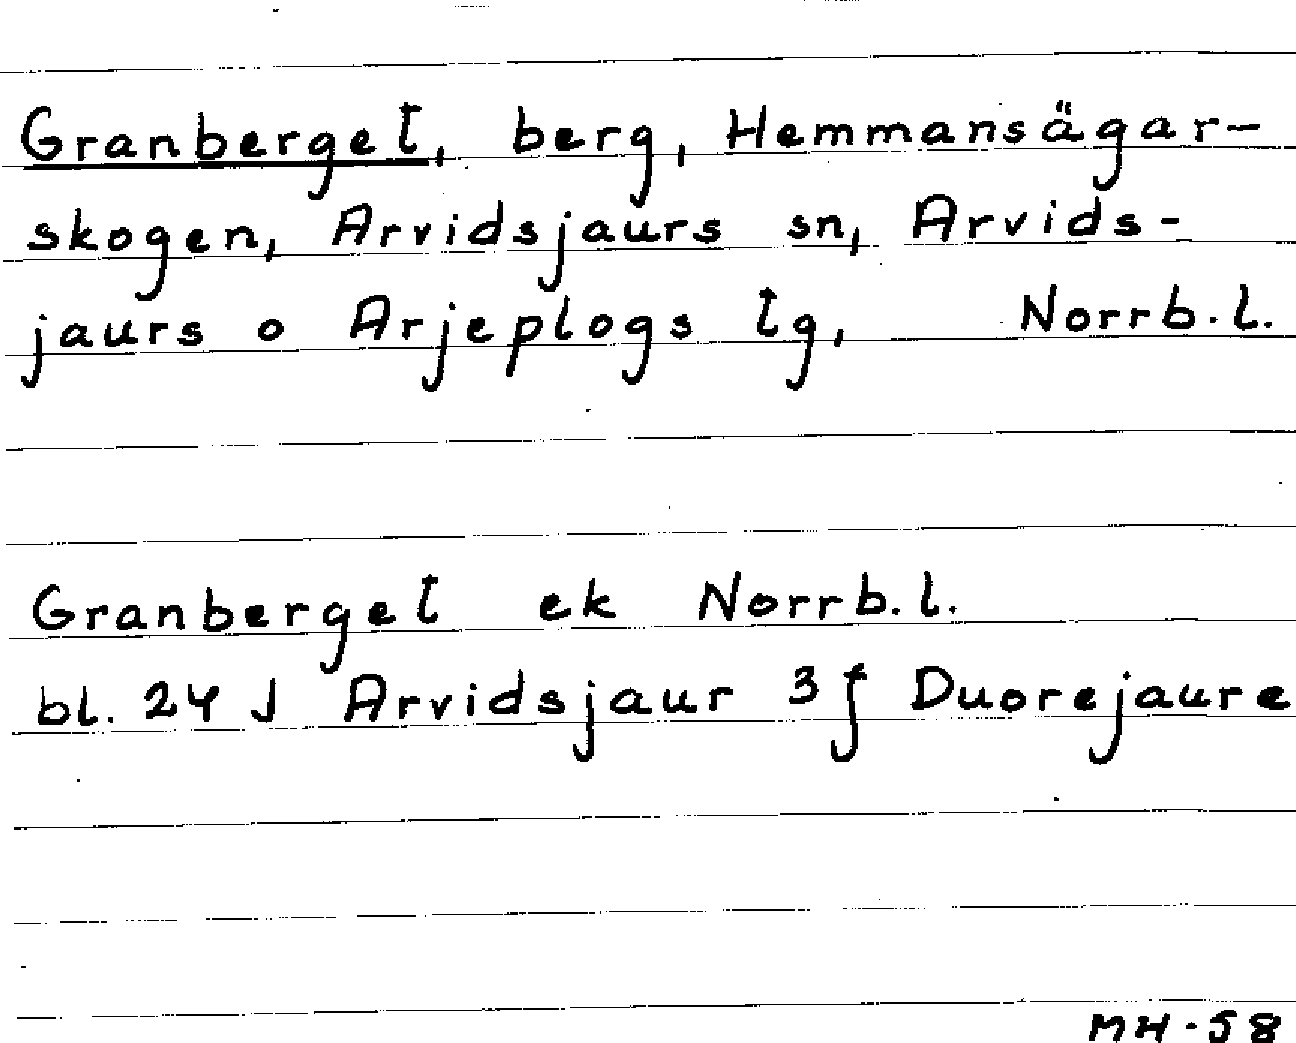 Granberget, berg, Hemmansägar-
skogen, Arvidsjaurs sn, Arvids-
jaurs o Arjeplogs tg, Norrb.l.
Granberget ek Norrb.l.
bl. 24 J Arvidsjaur 3 f Duorejaure
MH-58